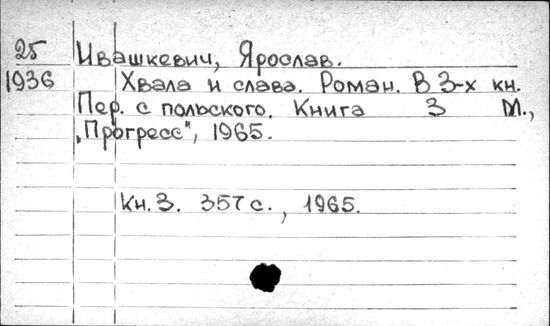 25 Ивашкевич, Ярослав.
1936 Хвала и слава. Роман. В 3-х кн.
Пер. с польского. Книга 3 М.,
„Прогресс", 1965.
Кн. 3. 357 с., 1965.